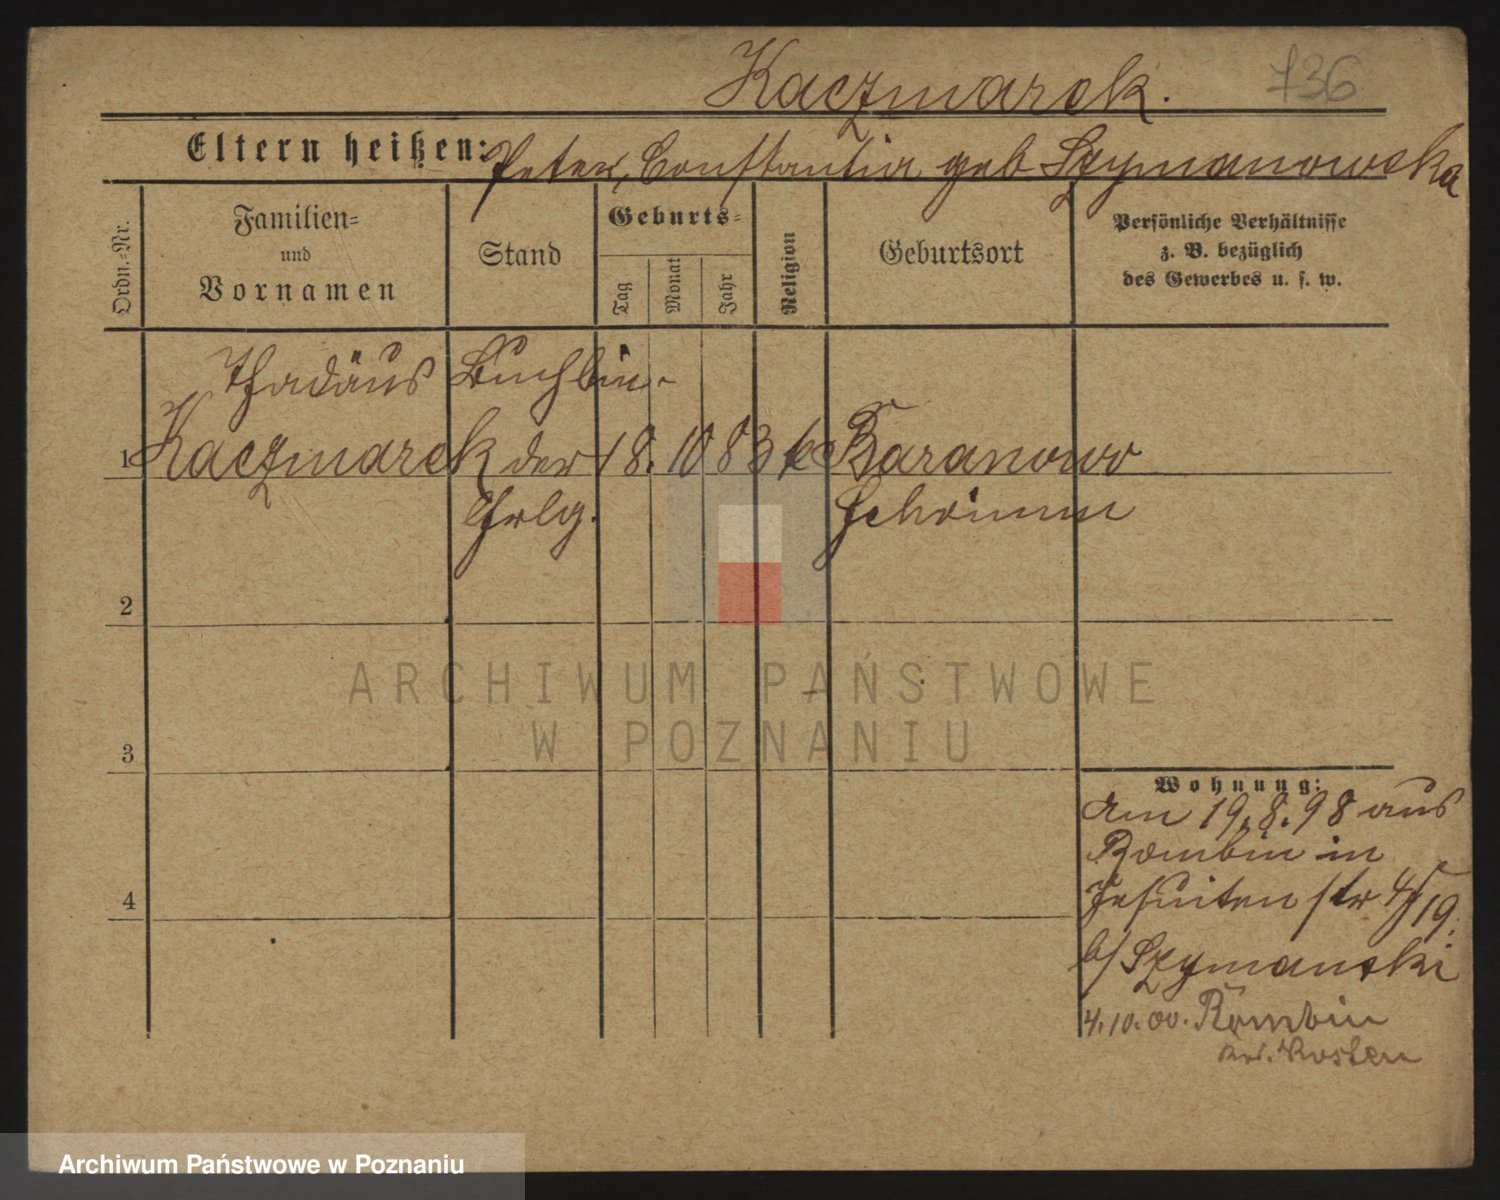 Kaczmarek. 736
Eltern heißen: Peter, Constantia geb Szymanowska
Ordn.-Nr.
Familien-
und
Vornamen
Stand
Geburts-
Tag
Monat
Jahr
Religion
Geburtsort
Persönliche Verhältnisse
z. B. bezüglich
des Gewerbes u. s. w.
Thadäus Buchbin-
1 Kaczmarek der 18. 10 83 Baranowo
Schrimm
2
3
4
Wohnung:
Am 19.8.98 aus
Rombin in
Jesuiten str
b/ Szymanski
4.10.00. Rombin
Kosten
ARCHIWUM PAŃSTWOWE
W POZNANIU
Archiwum Państwowe w Poznaniu